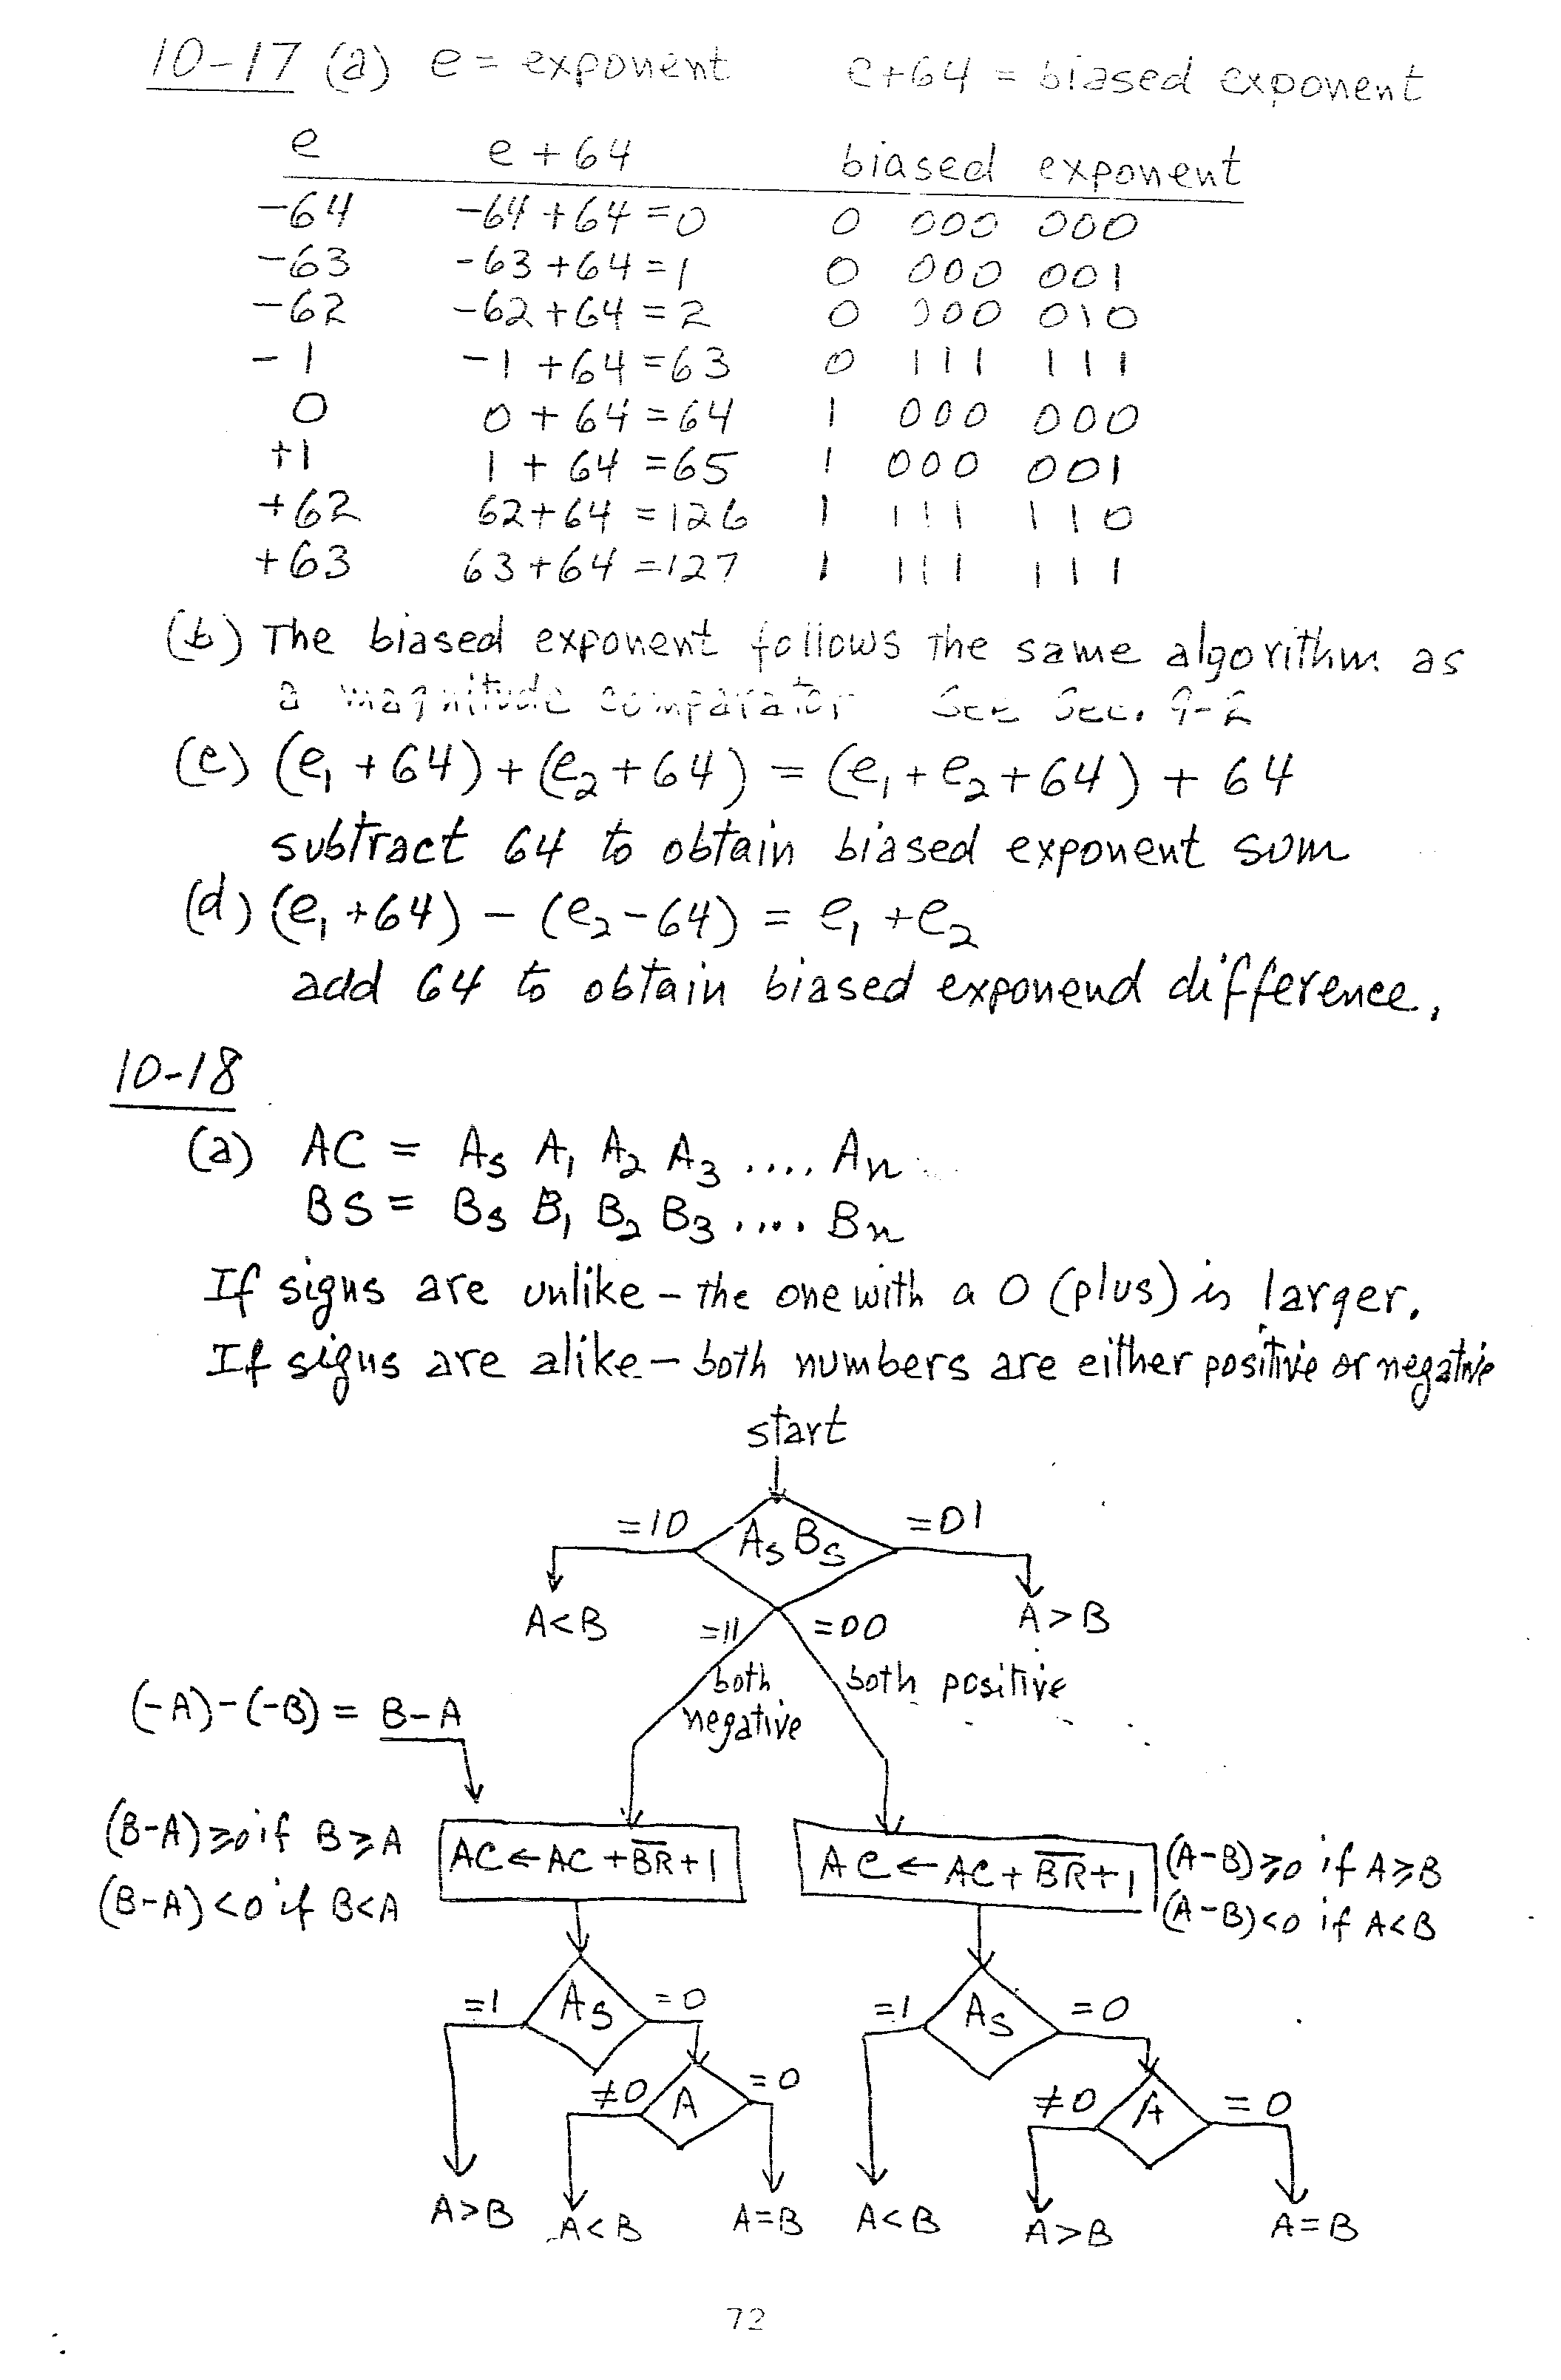 10-17 (a) e = exponent e+64 = biased exponent
e e + 64 biased exponent
-64 -64+64=0 0 000 000
-63 -63+64=1 0 000 001
-62 -62+64=2 0 000 010
-1 -1+64=63 0 111 111
0 0+64=64 1 000 000
+1 1+64=65 1 000 001
+62 62+64=126 1 111 110
+63 63+64=127 1 111 111
(b) The biased exponent follows the same algorithm as
a magnitude comparator See Sec. 9-2
(c) (e₁+64)+(e₂+64) = (e₁+e₂+64)+64
subtract 64 to obtain biased exponent sum
(d) (e₁+64) - (e₂-64) = e₁+e₂
add 64 to obtain biased exponend difference.
10-18
(a) AC = As A₁ A₂ A₃ .... An
BS = Bs B₁ B₂ B₃ .... Bn
If signs are unlike - the one with a 0 (plus) is larger.
If signs are alike - both numbers are either positive or negative
start
=10 As Bs =01
A<B =11 =00 A>B
both both positive
negative
(-A)-(-B) = B-A
(B-A)≥0 if B≥A AC←AC+B̅R̅+1 AC←AC+B̅R̅+1 (A-B)≥0 if A≥B
(B-A)<0 if B<A (A-B)<0 if A<B
=1 As =0 =1 As =0
≠0 A =0 ≠0 A =0
A>B A<B A=B A<B A>B A=B
72